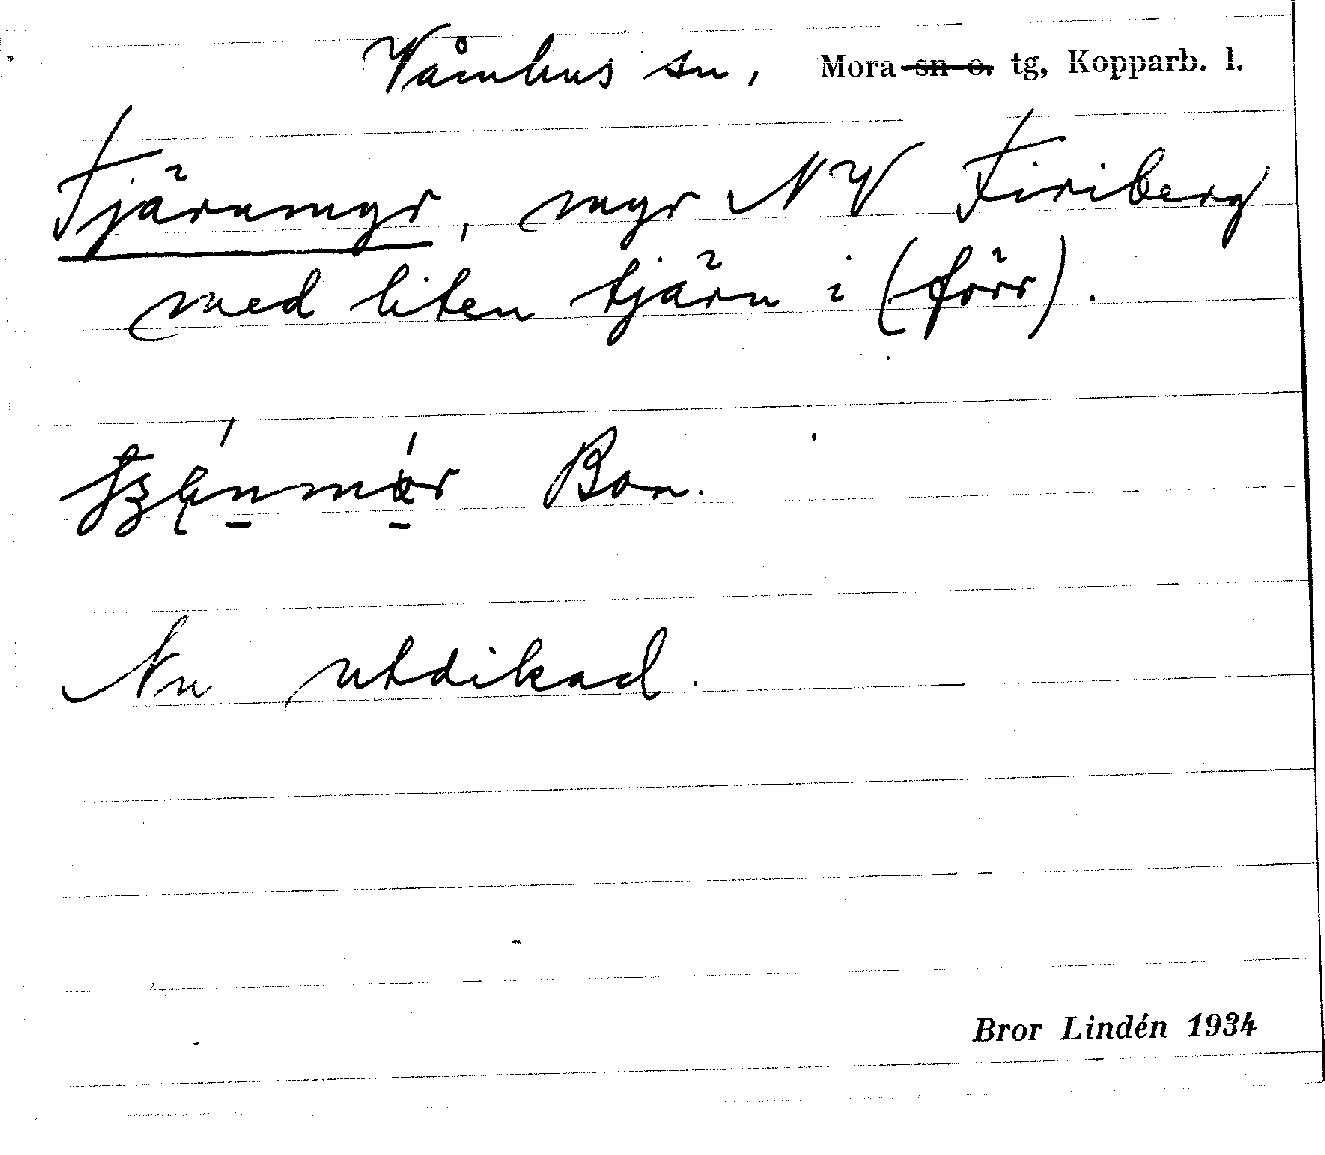 Våmhus sn, Mora sn o. tg, Kopparb. l.
Tjärnmyr, myr NV Firiberg
med liten tjärn i (förr).
Bon.
Nu utdikad.
Bror Lindén 1934